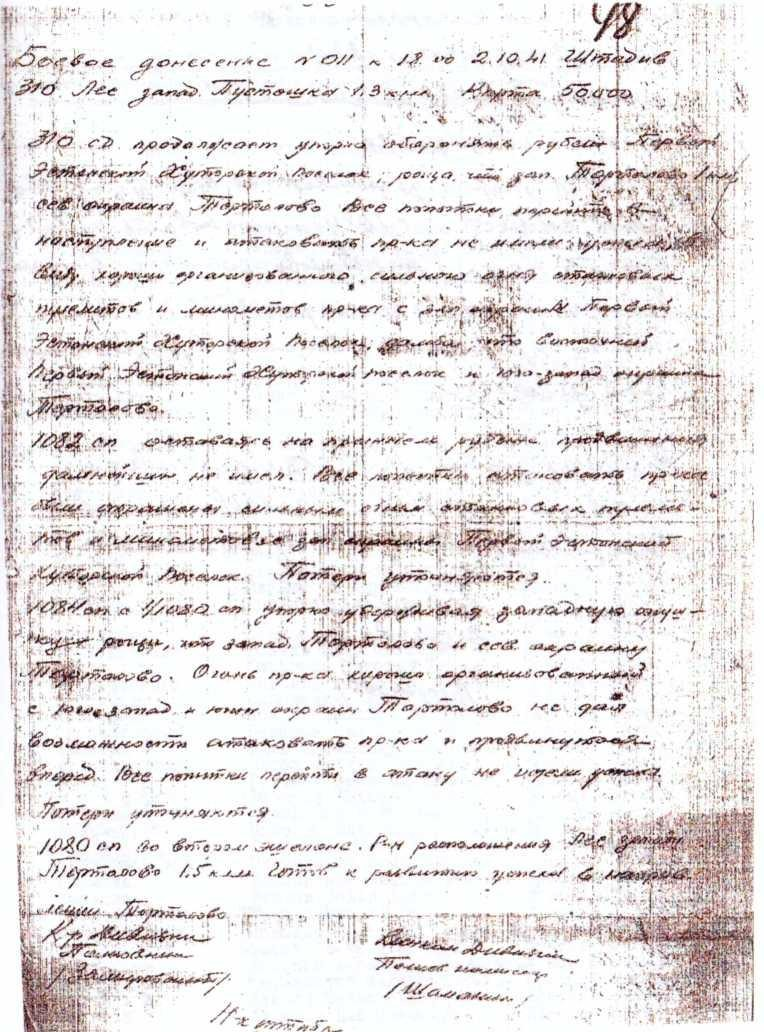 48
Боевое донесение №011 к 18.00 2.10.41 Штадив
310 Лес запад. Пустошка 1.3 клм. Карта 50.000
310 СД продолжает упорно оборонять рубеж Первый
Эстонский Хуторской Поселок, роща, что зап. Тортолово 1 клм,
сев. окраина Тортолово Все попытки перейти в
наступление и атаковать пр-ка не имели успеха, в
виду хорошо организованного, сильного огня
пулеметов и минометов пр-ка с зап. окраины Первый
Эстонский Хуторской Поселок, что восточный
Первый Эстонский Хуторской поселок и юго-запад окраина
Тортолово.
1082 сп оставаясь на прежнем рубеже продвижения
дальнейшего не имел. Все попытки атаковать пр-ка
были отражены сильным огнем пулеме-
тов и минометов с зап. окраины Первый Эстонский
Хуторской Поселок. Потери уточняются.
1084 сп с 1/1080 сп упорно удерживая западную опуш-
ку рощи, что запад. Тортолово и сев. окраину
Тортолово. Огонь пр-ка хорошо организованный
с юго-запад. и южн окраин Тортолово не дал
возможности атаковать пр-ка и продвинуться
вперед. Все попытки перейти в атаку не имели успеха.
Потери уточняются.
1080 сп во втором эшелоне. Р-н расположения Лес западн.
Тортолово 1.5 клм. Готов к развитию успеха в направ-
лении Тортолово
К-р Дивизии
Полковник
/Замировский/
Военком Дивизии
Полков комиссар
/Шаманин/
Н-к штаба